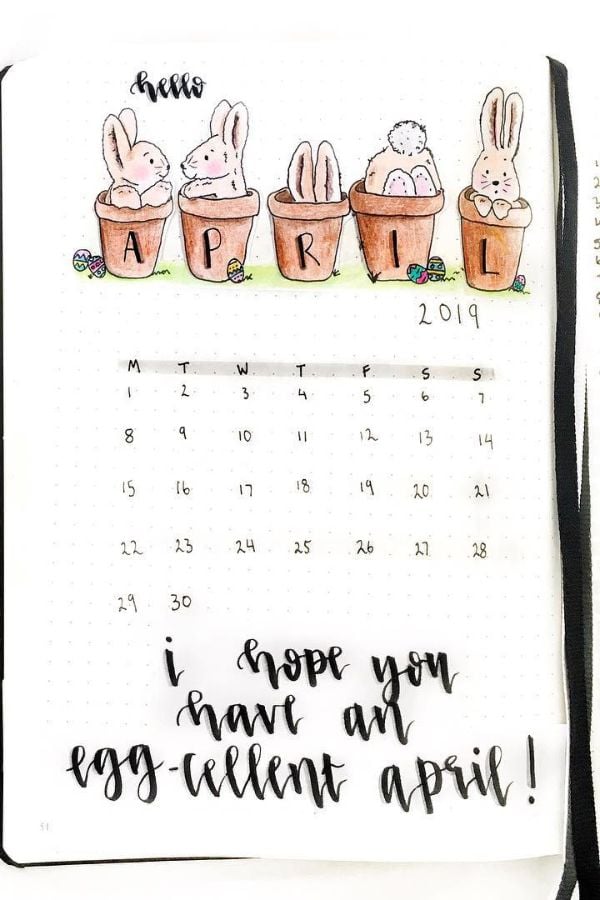 hello
A P R I L
2019
M T W T F S S
1 2 3 4 5 6 7
8 9 10 11 12 13 14
15 16 17 18 19 20 21
22 23 24 25 26 27 28
29 30
i hope you
have an
egg-cellent april!